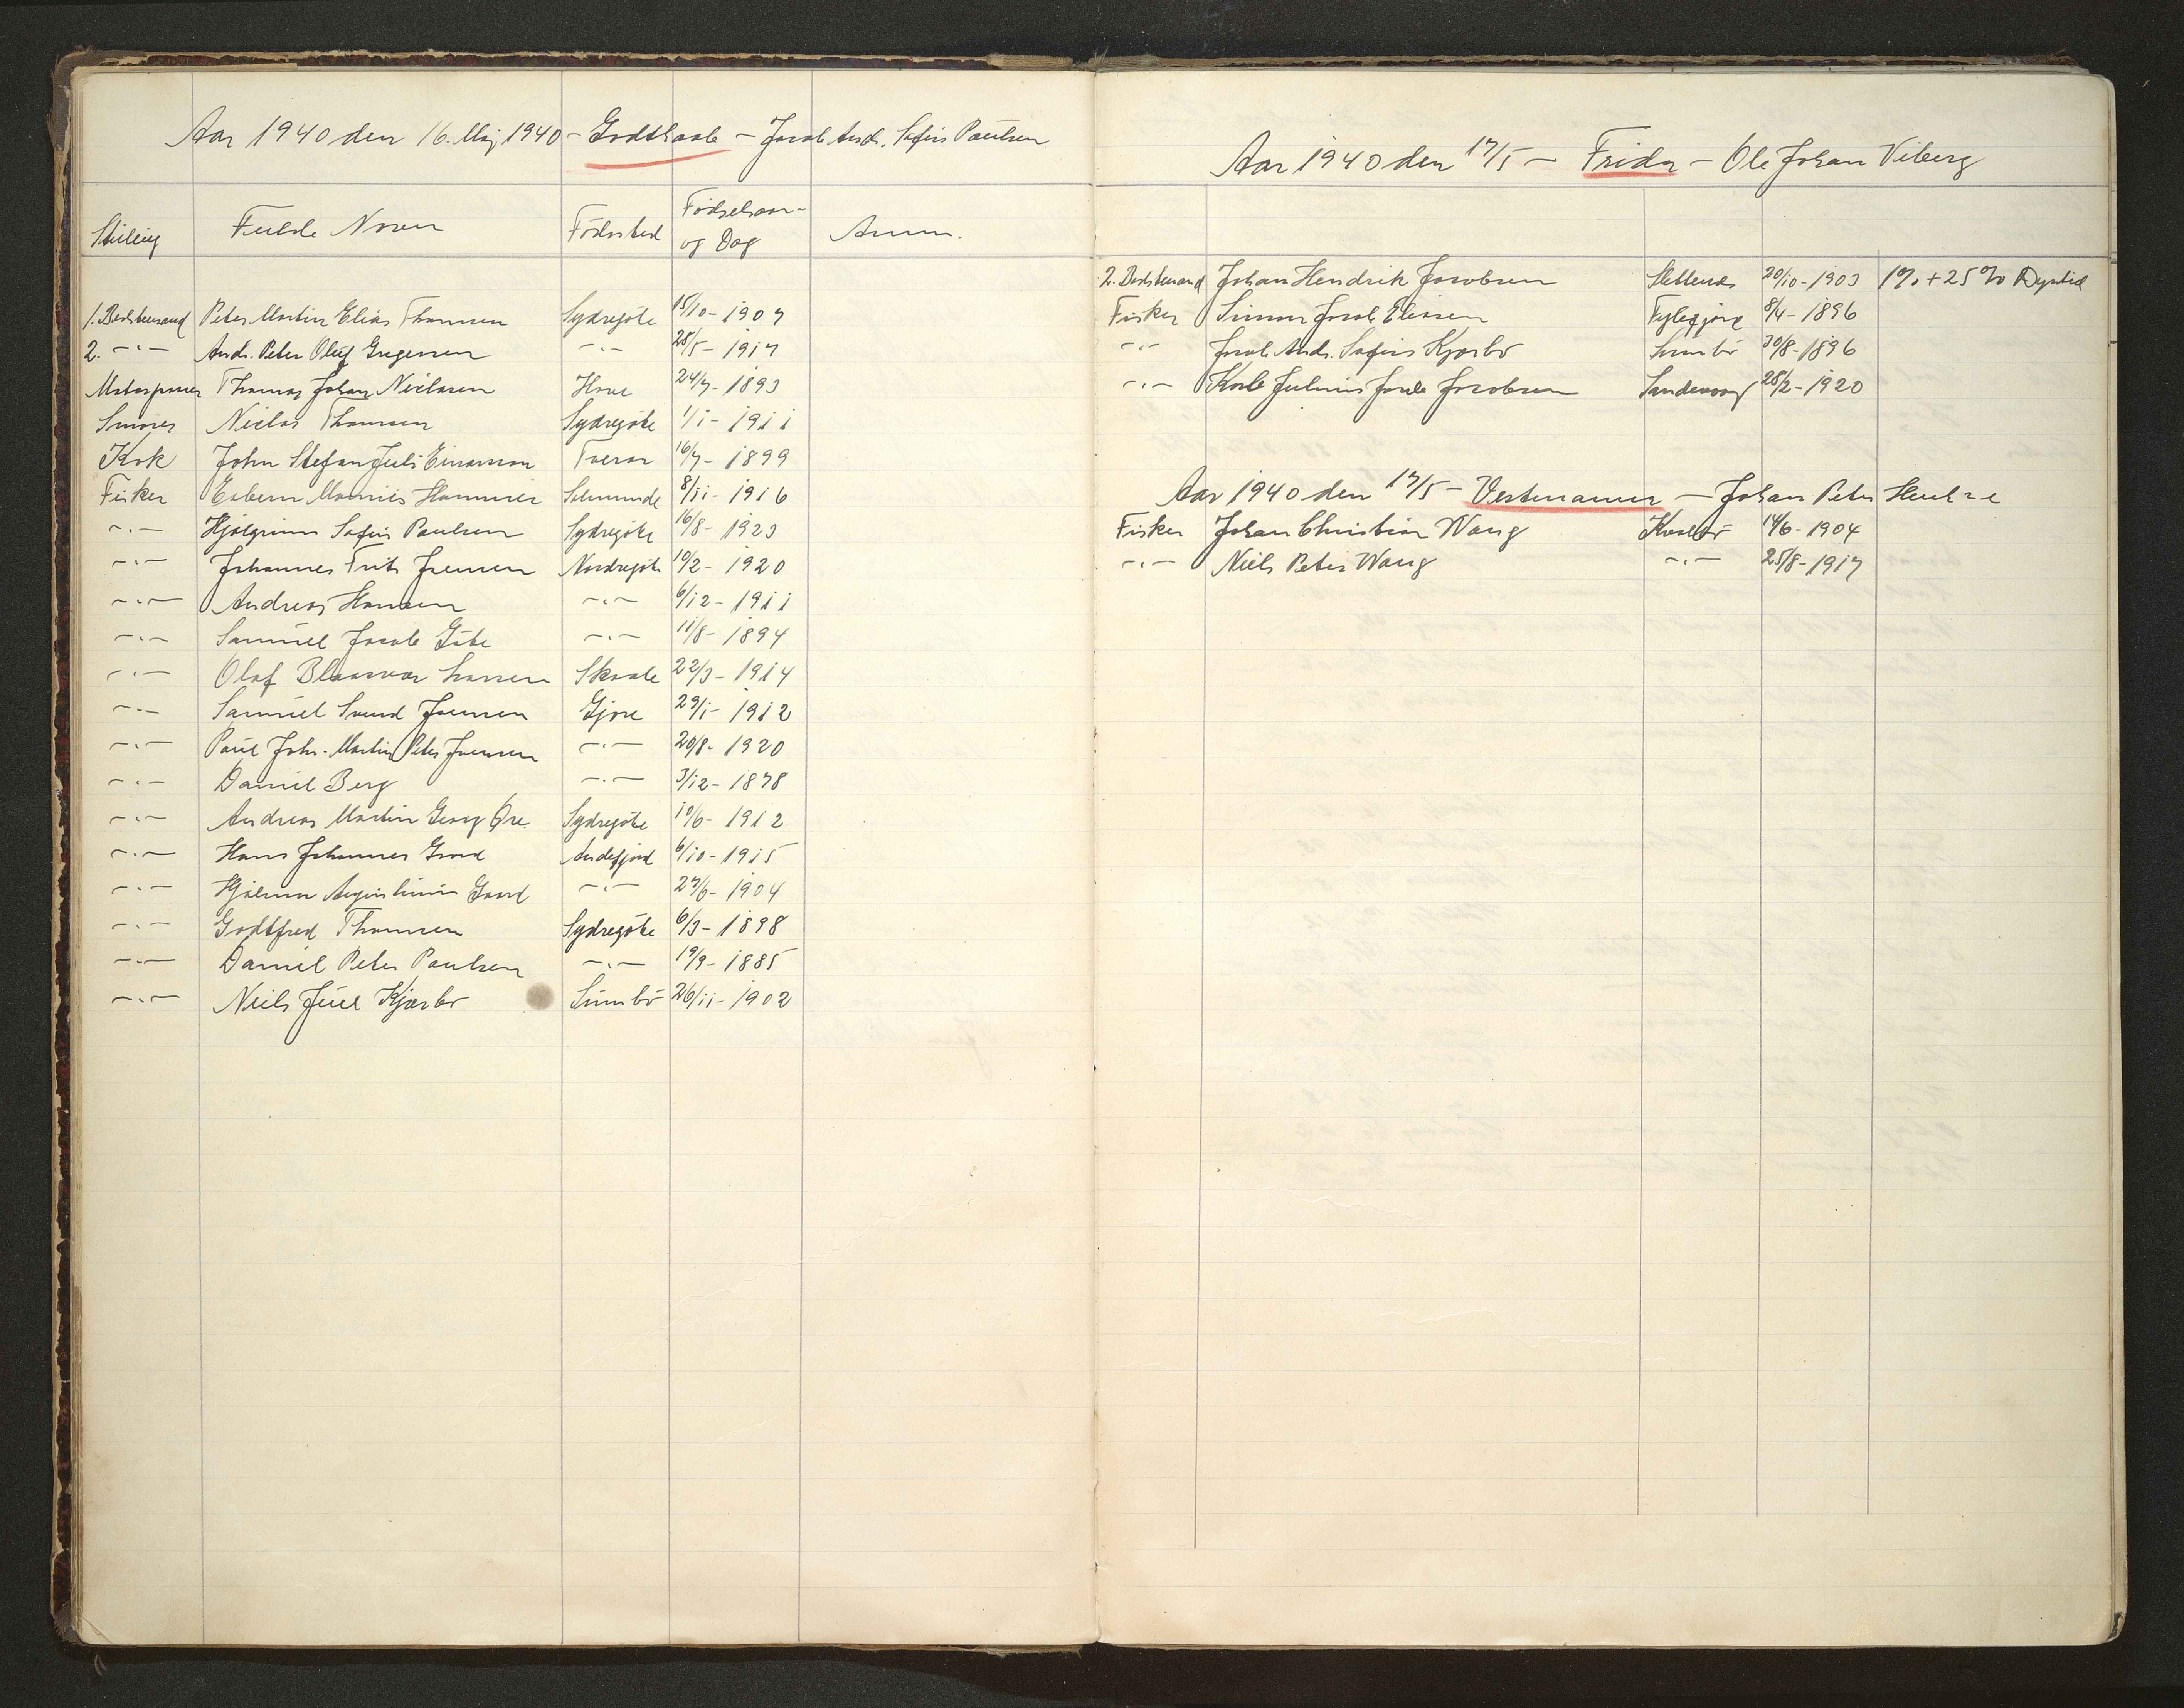 Aar 1940 den 16. Maj 1940 - Godthaab - Jacob Andr. Sofus Paulsen
Stilling Fulde Navn Fødested Fødselsaar- og Dag Anm.
1. Bestmand Peter Martin Elias Thomsen Sydregöte 15/10 - 1907
2. -"- Andr. Peter Oluf Gregersen -"- 28/5 - 1917
Motorpasser Thomas Johan Niclasen Hove 24/7 - 1893
Smører Niclas Thomsen Sydregöte 1/1 - 1911
Kok John Stefan Juli Einarsson Tveraa 16/7 - 1899
Fisker Esbern Hammer Salmunde 8/11 - 1916
-"- Hjalgrim Sofus Paulsen Sydregöte 16/8 - 1923
-"- Johannes Frits Joensen Nordregöte 10/2 - 1920
-"- Andreas Hansen -"- 6/12 - 1911
-"- Samuel Jacob Göte -"- 11/8 - 1894
-"- Olaf Blaasvær Larsen Skaale 22/3 - 1914
-"- Samuel Svend Joensen Gjov 29/1 - 1912
-"- Paul Johs. Martin Peter Joensen -"- 20/8 - 1920
-"- Daniel Berg -"- 3/12 - 1878
-"- Andreas Martin Georg Øre Sydregöte 10/6 - 1912
-"- Hans Johannes Gaard Andefjord 6/10 - 1915
-"- Hjalmar Augustinus Gaard -"- 27/6 - 1904
-"- Godtfred Thomsen Sydregöte 6/3 - 1898
-"- Daniel Peter Paulsen -"- 19/9 - 1885
-"- Niels Juul Kjærbo Sumbö 26/11 - 1902
Aar 1940 den 17/5 - Frida - Ole Johan Viberg
2. Bestmand Johan Hendrik Jacobsen Slettenes 20/10 - 1903 1% + 25% Dyrtid
Fisker Simon Jacob Eliasen Fuglefjord 8/4 - 1896
-"- Jacob Andr. Sofus Kjærbo Sumbö 30/8 - 1896
-"- Karl Julius Jacobsen Sandevaag 28/2 - 1920
Aar 1940 den 17/5 - Vestmanna - Johan Peter Hentze
Fisker Johan Christian Wang Kvalbö 14/6 - 1904
-"- Niels Peter Wang -"- 25/8 - 1917